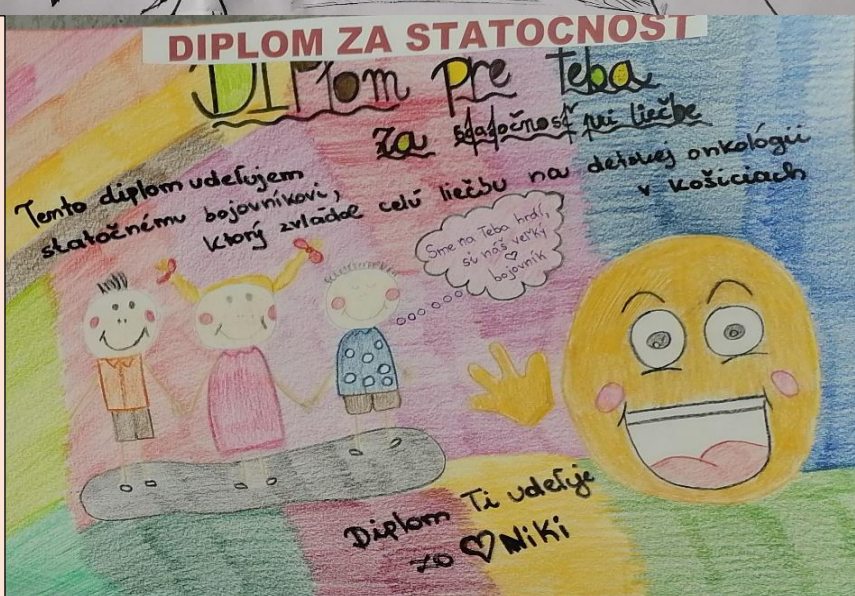 DIPLOM ZA STATOCNOST
DIPlom pre teba
za statočnosť pri liečbe
Tento diplom udeľujem
statočnému bojovníkovi,
ktorý zvládol celú liečbu na detskej onkológii
v Košiciach
Sme na Teba hrdí,
si náš veľký
bojovník
Diplom Ti udeľuje
zo ♡ Niki